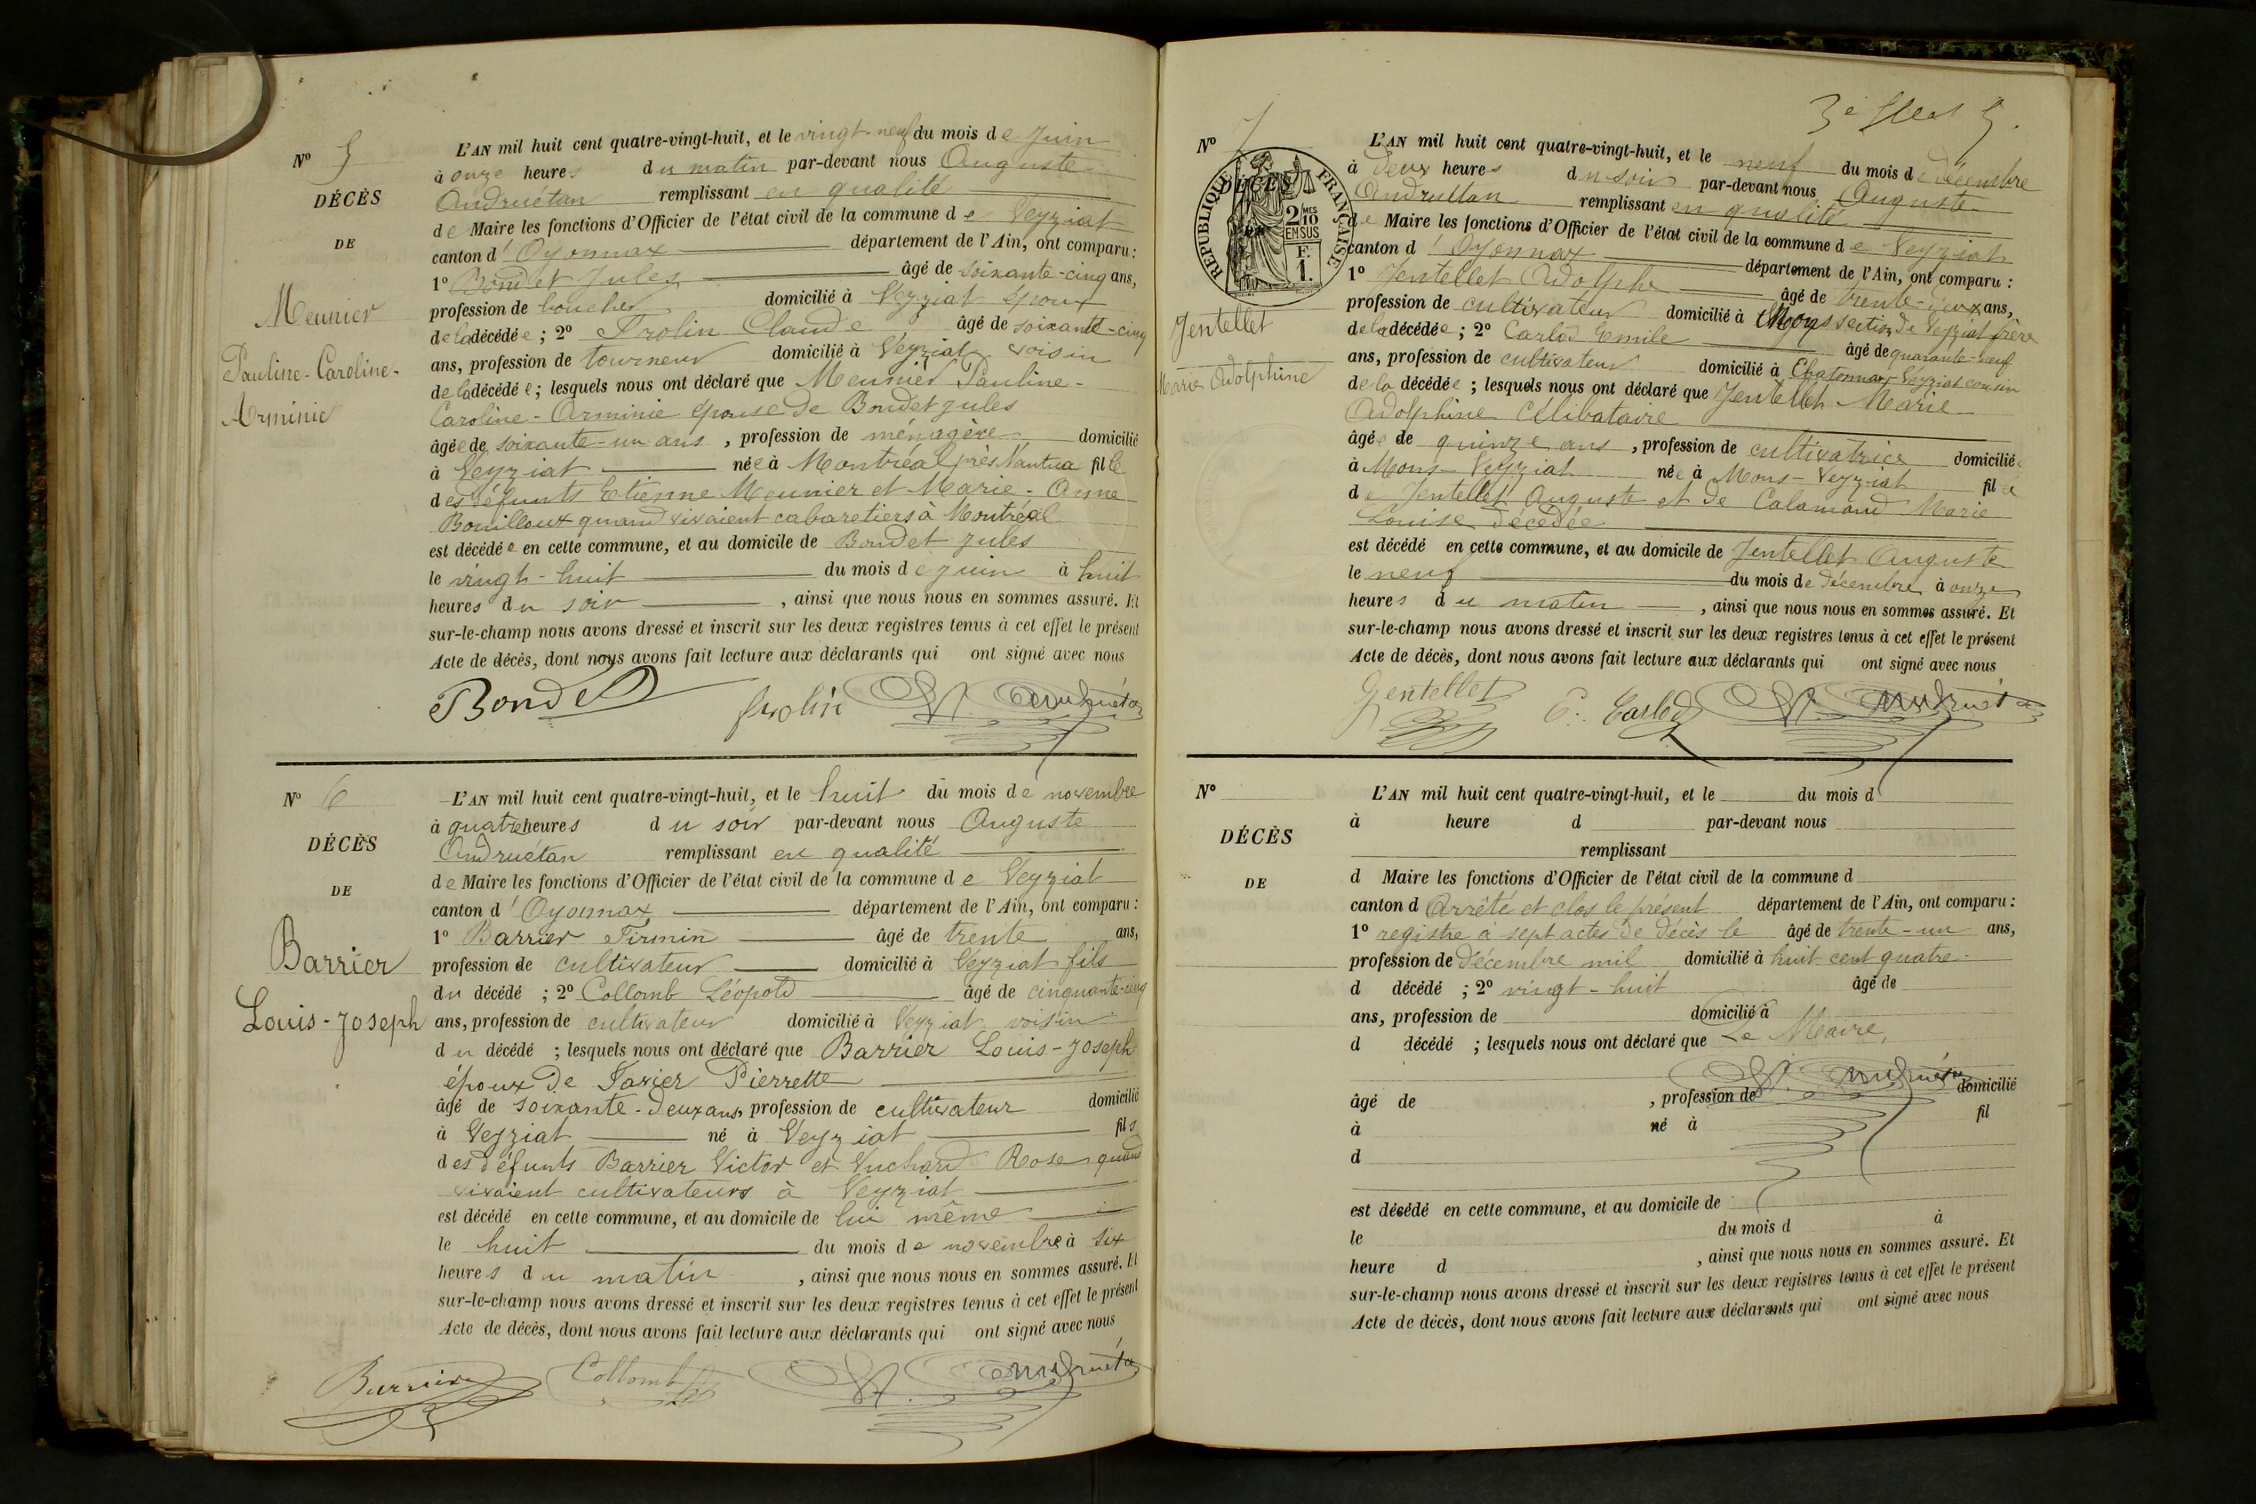 Nº 5
DÉCÈS
DE
Meunier
Pauline-Caroline-
Arminie
L'AN mil huit cent quatre-vingt-huit, et le vingt-neuf du mois de Juin
à onze heures du matin par-devant nous Auguste
Andruétan remplissant en qualité
de Maire les fonctions d'Officier de l'état civil de la commune de Veyziat
canton d'Oyonnax département de l'Ain, ont comparu :
1º Bondet Jules âgé de soixante-cinq ans,
profession de boucher domicilié à Veyziat époux
de la décédée ; 2º Frolin Claude âgé de soixante-cinq
ans, profession de tourneur domicilié à Veyziat voisin
de la décédée ; lesquels nous ont déclaré que Meunier Pauline-
Caroline-Arminie épouse de Bondet Jules
âgée de soixante-un ans, profession de ménagère domicilié
à Veyziat née à Montréal près Nantua fille
des défunts Etienne Meunier et Marie-Anne
Bouilloux quand vivaient cabaretiers à Montréal
est décédée en cette commune, et au domicile de Bondet Jules
le vingt-huit du mois de juin à huit
heures du soir, ainsi que nous nous en sommes assuré. Et
sur-le-champ nous avons dressé et inscrit sur les deux registres tenus à cet effet le présent
Acte de décès, dont nous avons fait lecture aux déclarants qui ont signé avec nous
Bondet frolin Andruétan
Nº 6
DÉCÈS
DE
Barrier
Louis-Joseph
L'AN mil huit cent quatre-vingt-huit, et le huit du mois de novembre
à quatre heures du soir par-devant nous Auguste
Andruétan remplissant en qualité
de Maire les fonctions d'Officier de l'état civil de la commune de Veyziat
canton d'Oyonnax département de l'Ain, ont comparu :
1º Barrier Firmin âgé de trente ans,
profession de cultivateur domicilié à Veyziat fils
du décédé ; 2º Collomb Léopold âgé de cinquante-cinq
ans, profession de cultivateur domicilié à Veyziat voisin
du décédé ; lesquels nous ont déclaré que Barrier Louis-Joseph
époux de Tavier Pierrette
âgé de soixante-deux ans, profession de cultivateur domicilié
à Veyziat né à Veyziat fils
des défunts Barrier Victor et Vuchard Rose quand
vivaient cultivateurs à Veyziat
est décédé en cette commune, et au domicile de lui même
le huit du mois de novembre à six
heures du matin, ainsi que nous nous en sommes assuré. Et
sur-le-champ nous avons dressé et inscrit sur les deux registres tenus à cet effet le présent
Acte de décès, dont nous avons fait lecture aux déclarants qui ont signé avec nous
Barrier Collomb Andruétan
Nº 7
DÉCÈS
RÉPUBLIQUE FRANÇAISE
2/10 MES
EN SUS
F.
1.
Jentellet
Marie Adolphine
L'AN mil huit cent quatre-vingt-huit, et le neuf du mois de décembre
à deux heures du soir par-devant nous Auguste
Andruétan remplissant en qualité
de Maire les fonctions d'Officier de l'état civil de la commune de Veyziat
canton d'Oyonnax département de l'Ain, ont comparu :
1º Jentellet Adolphe âgé de trente-deux ans,
profession de cultivateur domicilié à Mons section de Veyziat frère
de la décédée ; 2º Carlod Emile âgé de quarante-neuf
ans, profession de cultivateur domicilié à Chatonnax-Veyziat cousin
de la décédée ; lesquels nous ont déclaré que Jentellet Marie
Adolphine Célibataire
âgée de quinze ans, profession de cultivatrice domiciliée
à Mons-Veyziat née à Mons-Veyziat fille
de Jentellet Auguste et de Calamand Marie
Louise décédée
est décédé en cette commune, et au domicile de Jentellet Auguste
le neuf du mois de décembre à onze
heures du matin, ainsi que nous nous en sommes assuré. Et
sur-le-champ nous avons dressé et inscrit sur les deux registres tenus à cet effet le présent
Acte de décès, dont nous avons fait lecture aux déclarants qui ont signé avec nous
Gentellet E. Carlod Andruétan
Nº
DÉCÈS
DE
L'AN mil huit cent quatre-vingt-huit, et le du mois d
à heure d par-devant nous
remplissant
d Maire les fonctions d'Officier de l'état civil de la commune d
canton d Arrêté et clos le présent département de l'Ain, ont comparu :
1º registre à sept actes de décès le âgé de trente-un ans,
profession de décembre mil domicilié à huit cent quatre-
d décédé ; 2º vingt-huit âgé de
ans, profession de domicilié à
d décédé ; lesquels nous ont déclaré que Le Maire,
Andruétan
âgé de , profession de domicilié
à né à fil
d
est décédé en cette commune, et au domicile de
le du mois d à
heure d , ainsi que nous nous en sommes assuré. Et
sur-le-champ nous avons dressé et inscrit sur les deux registres tenus à cet effet le présent
Acte de décès, dont nous avons fait lecture aux déclarants qui ont signé avec nous